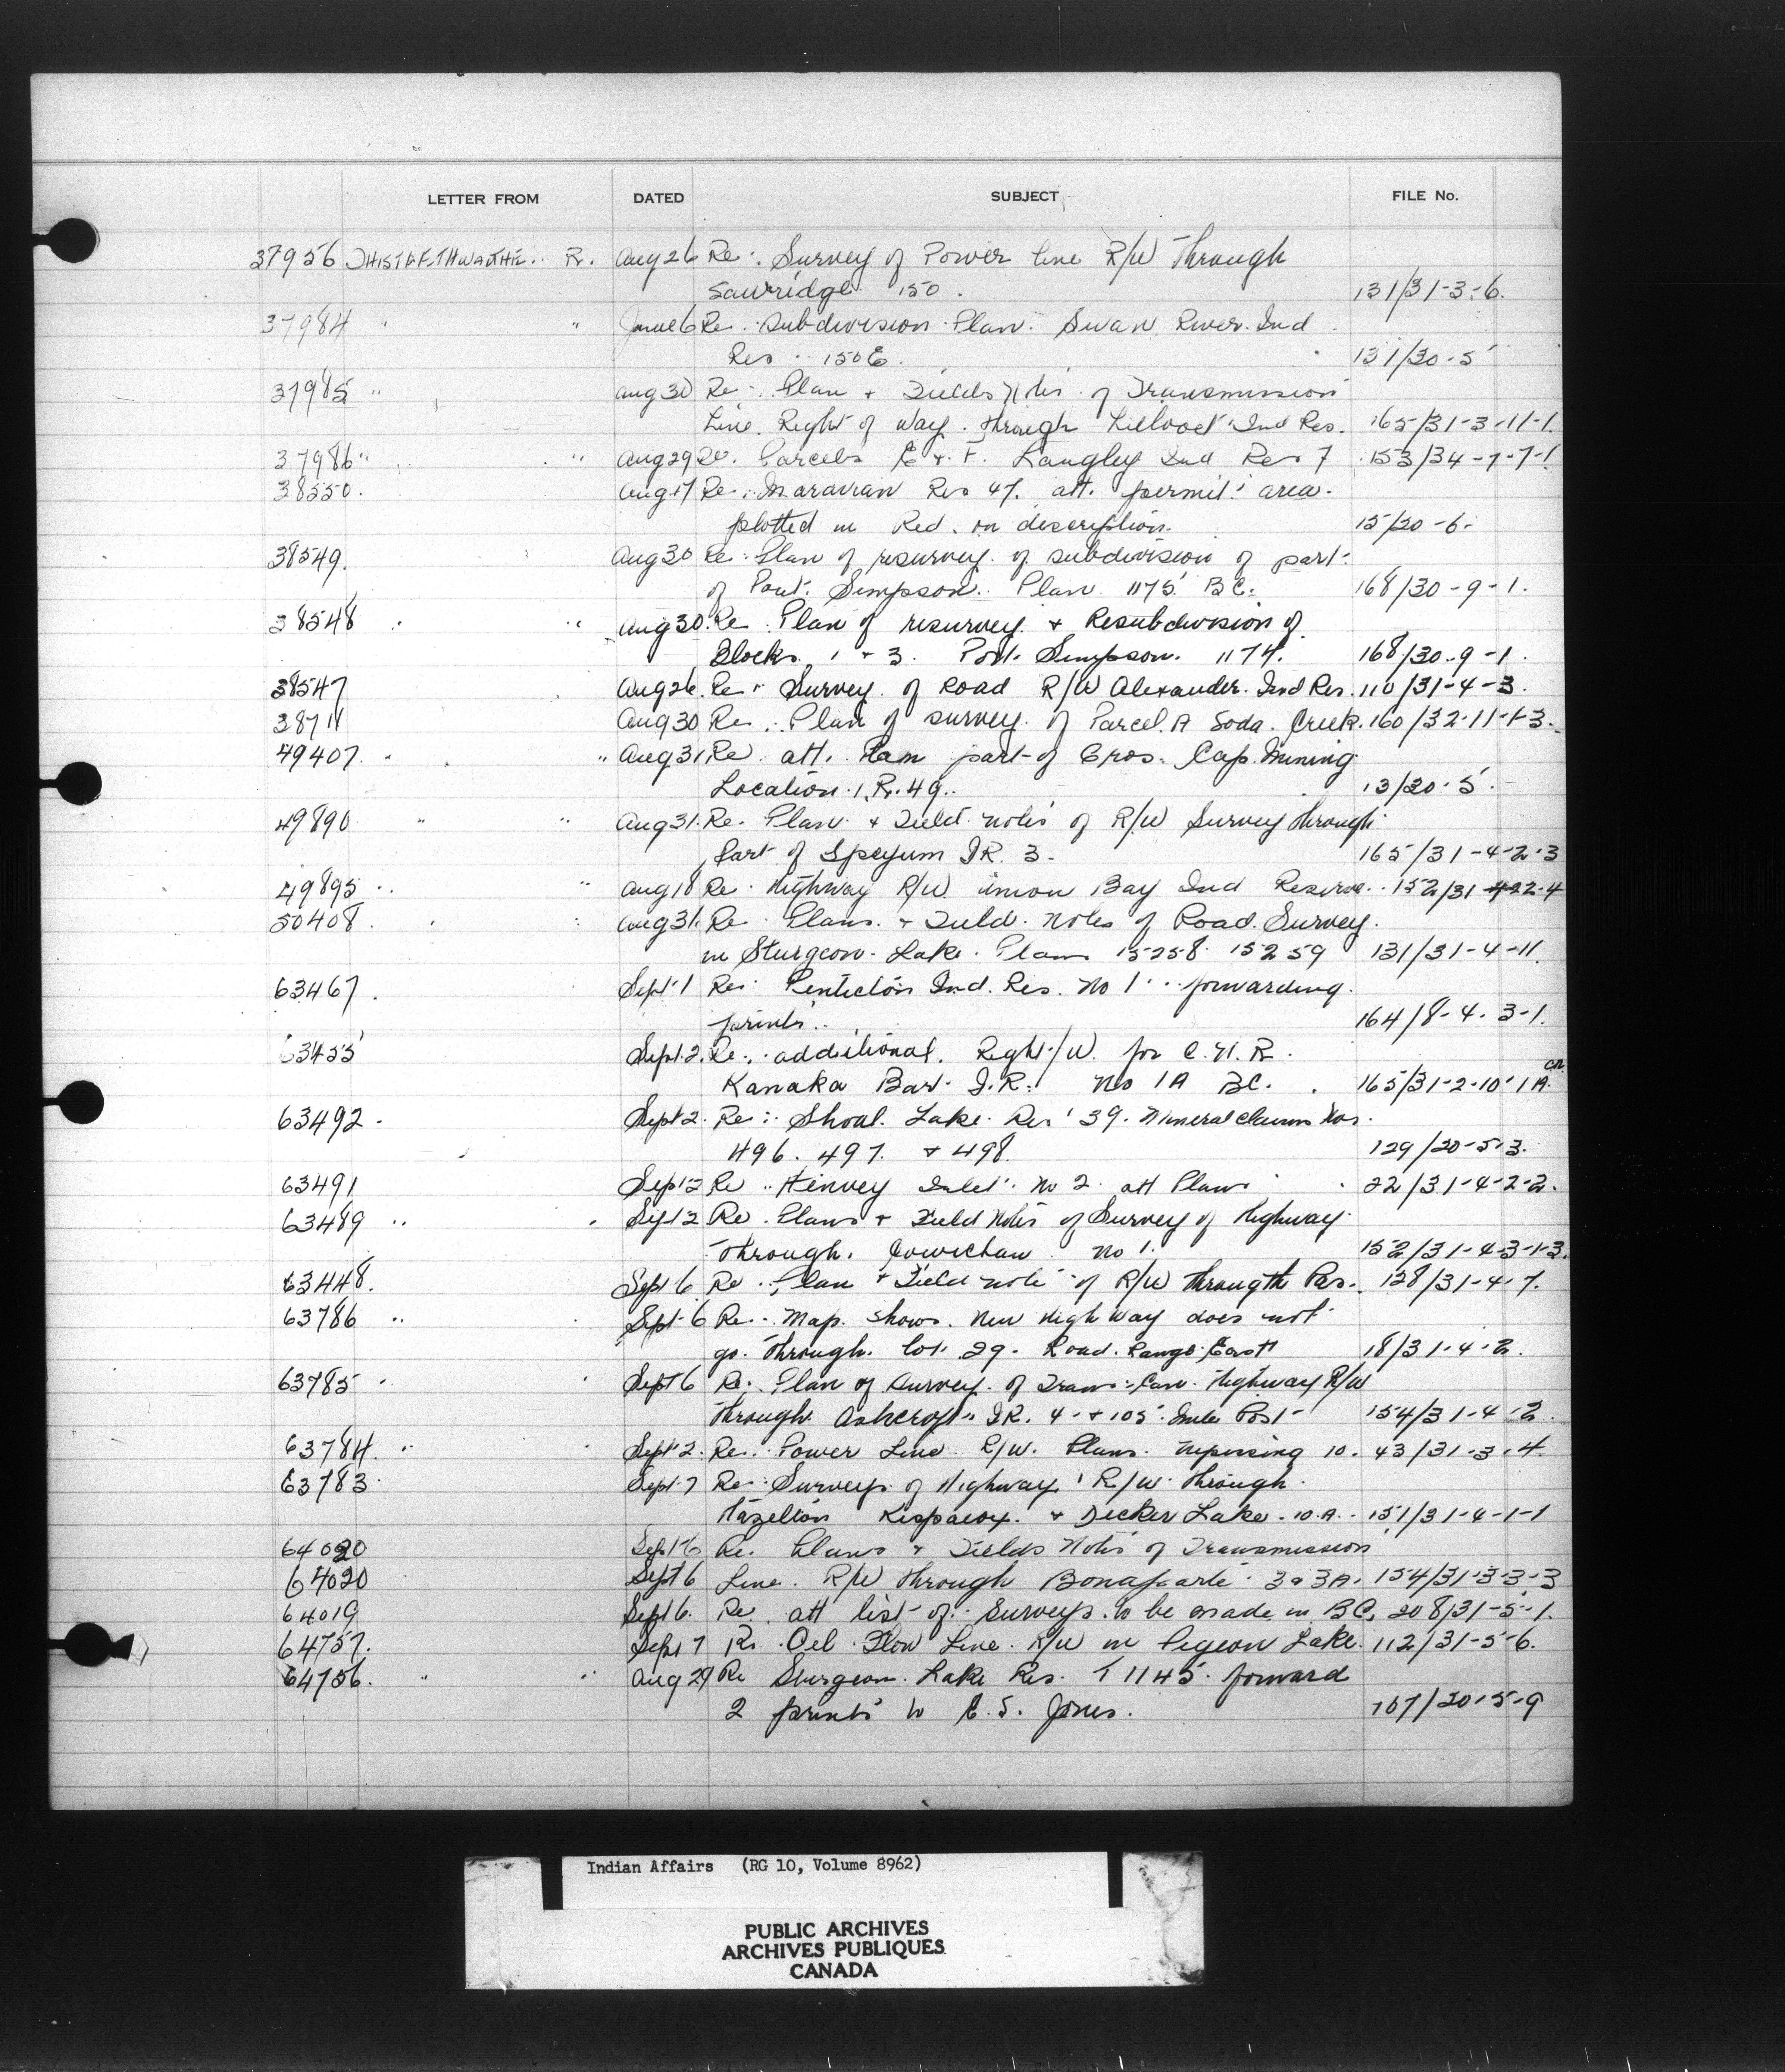 LETTER FROM DATED SUBJECT FILE No.
37956 R. Aug 26 Re: Survey of Power Line R/W Through
Sawridge 150. 131/31-3-6.
37984 " " June 6 Re: Subdivision Plan. Swan River Ind
Res 150E. 131/30-5
37985 " Aug 30 Re: Plan + Fields Notes of Transmission
Line Right of Way through Lillooet Ind Res. 165/31-3-11-1.
37986 " " Aug 29 Re. Parcels E + F. Langley Ind Res 7 153/34-7-7-1
38550. Aug 17 Re: Maravian Res 47. att. permit area
plotted in Red. on description. 15/20-6-
38549. Aug 30 Re: Plan of resurvey of subdivision of part
of Port Simpson. Plan 1175 BC. 168/30-9-1.
38548 " " Aug 30. Re Plan of resurvey + Resubdivision of
Blocks 1 + 3. Port Simpson. 1174. 168/30-9-1.
38547 Aug 26. Re: Survey of Road R/W Alexander Ind Res. 110/31-4-3.
38711 Aug 30 Re: Plan of survey of Parcel A Soda Creek. 160/32-11-1-3.
49407. " " Aug 31. Re att. Plan part of Gros Cap Mining
Location 1. R. 49. 13/20-5.
49890 " " Aug 31. Re. Plan + Field notes of R/W Survey through
Part of Speyum IR. 3. 165/31-4-2-3
49895 " " Aug 18 Re. Highway R/W Union Bay Ind Reserve. 152/31-4-22-4
50408. " " Aug 31. Re Plans + Field Notes of Road Survey.
in Sturgeon Lake. Plans 15258 15259 131/31-4-11.
63467. Sept 1 Re: Penticton Ind. Res. No 1 forwarding
prints. 164/8-4-3-1.
63455 Sept 2. Re. additional Right/W. for C.N.R.
Kanaka Bar I.R. No 1A BC. 165/31-2-10-1A.
63492. Sept 2. Re: Shoal Lake Res 39. Mineral claims Nos.
496. 497. + 498. 129/20-5-3.
63491 Sept 2 Re Henvey Inlet No 2. att Plan 22/31-4-2-2.
63489 " " Sept 2 Re. Plans + Field Notes of Survey of Highway
Through. Cowichan No 1. 152/31-4-3-1-3.
63448. Sept 6. Re: Plan + Field note of R/W through The Pas. 128/31-4-7.
63786 " Sept 6 Re: Map shows. New Highway does not
go through lot 29. Road. Range East 18/31-4-2.
63785 " " Sept 6 Re: Plan of Survey of Trans-Can. Highway R/W
through Ashcroft IR. 4 + 105 Mile Post 154/31-4-2.
63784. " " Sept 2. Re: Power Line R/W. Plans Nipissing 10. 43/31-3-4.
63783. Sept 7 Re: Surveys of Highway R/W through
Hazelton Kispaiox + Decker Lake 10A. 151/31-4-1-1
64020 Sept 6 Re. Plans + Fields Notes of Transmission
64020 Sept 6 Line R/W through Bonaparte 3 & 3A. 154/31-3-3-3
64019 Sept 6. Re att list of Surveys to be made in BC. 208/31-5-1.
64757. Sept 7 Re. Oil Flow Line R/W in Pigeon Lake. 112/31-5-6.
64756. " " Aug 29 Re Sturgeon Lake Res. T 1145. forward
2 prints to E. S. Jones. 107/20-5-9
Indian Affairs (RG 10, Volume 8962)
PUBLIC ARCHIVES
ARCHIVES PUBLIQUES
CANADA